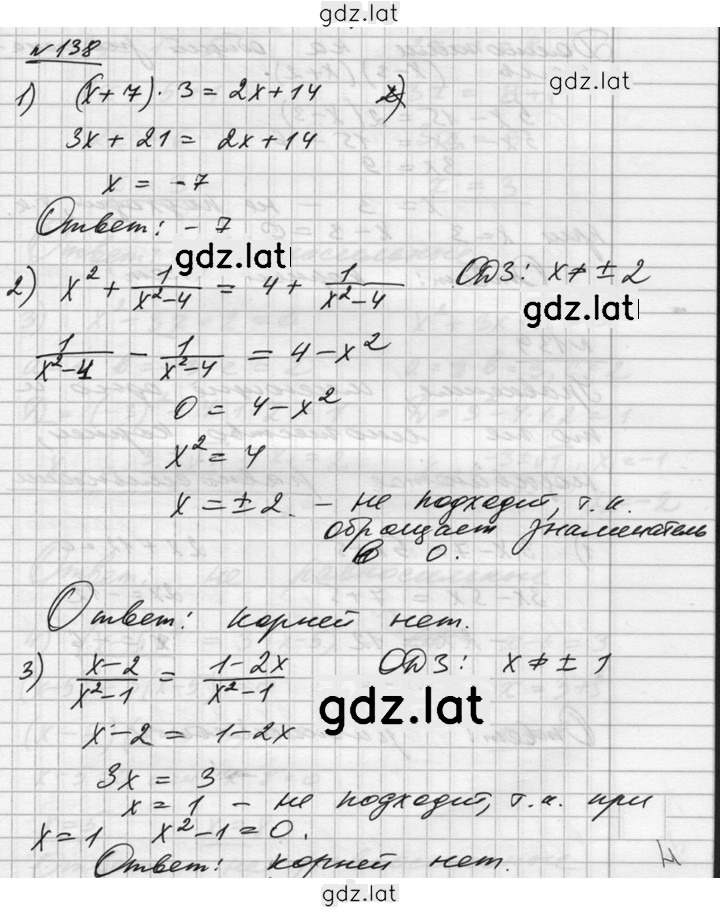 gdz.lat
№ 138
1) (x+7)·3 = 2x+14 2)
gdz.lat
3x+21 = 2x+14
x = -7
Ответ: -7
gdz.lat
2) x² + 1/(x²-4) = 4 + 1/(x²-4) ОДЗ: x ≠ ±2
gdz.lat
1/(x²-4) - 1/(x²-4) = 4-x²
0 = 4-x²
x² = 4
x = ±2. - не подходит, т.к.
обращает знаменатель
в 0.
Ответ: корней нет.
3) (x-2)/(x²-1) = (1-2x)/(x²-1) ОДЗ: x ≠ ±1
gdz.lat
x-2 = 1-2x
3x = 3
x = 1 - не подходит, т.к. при
x=1 x²-1=0.
Ответ: корней нет.
gdz.lat